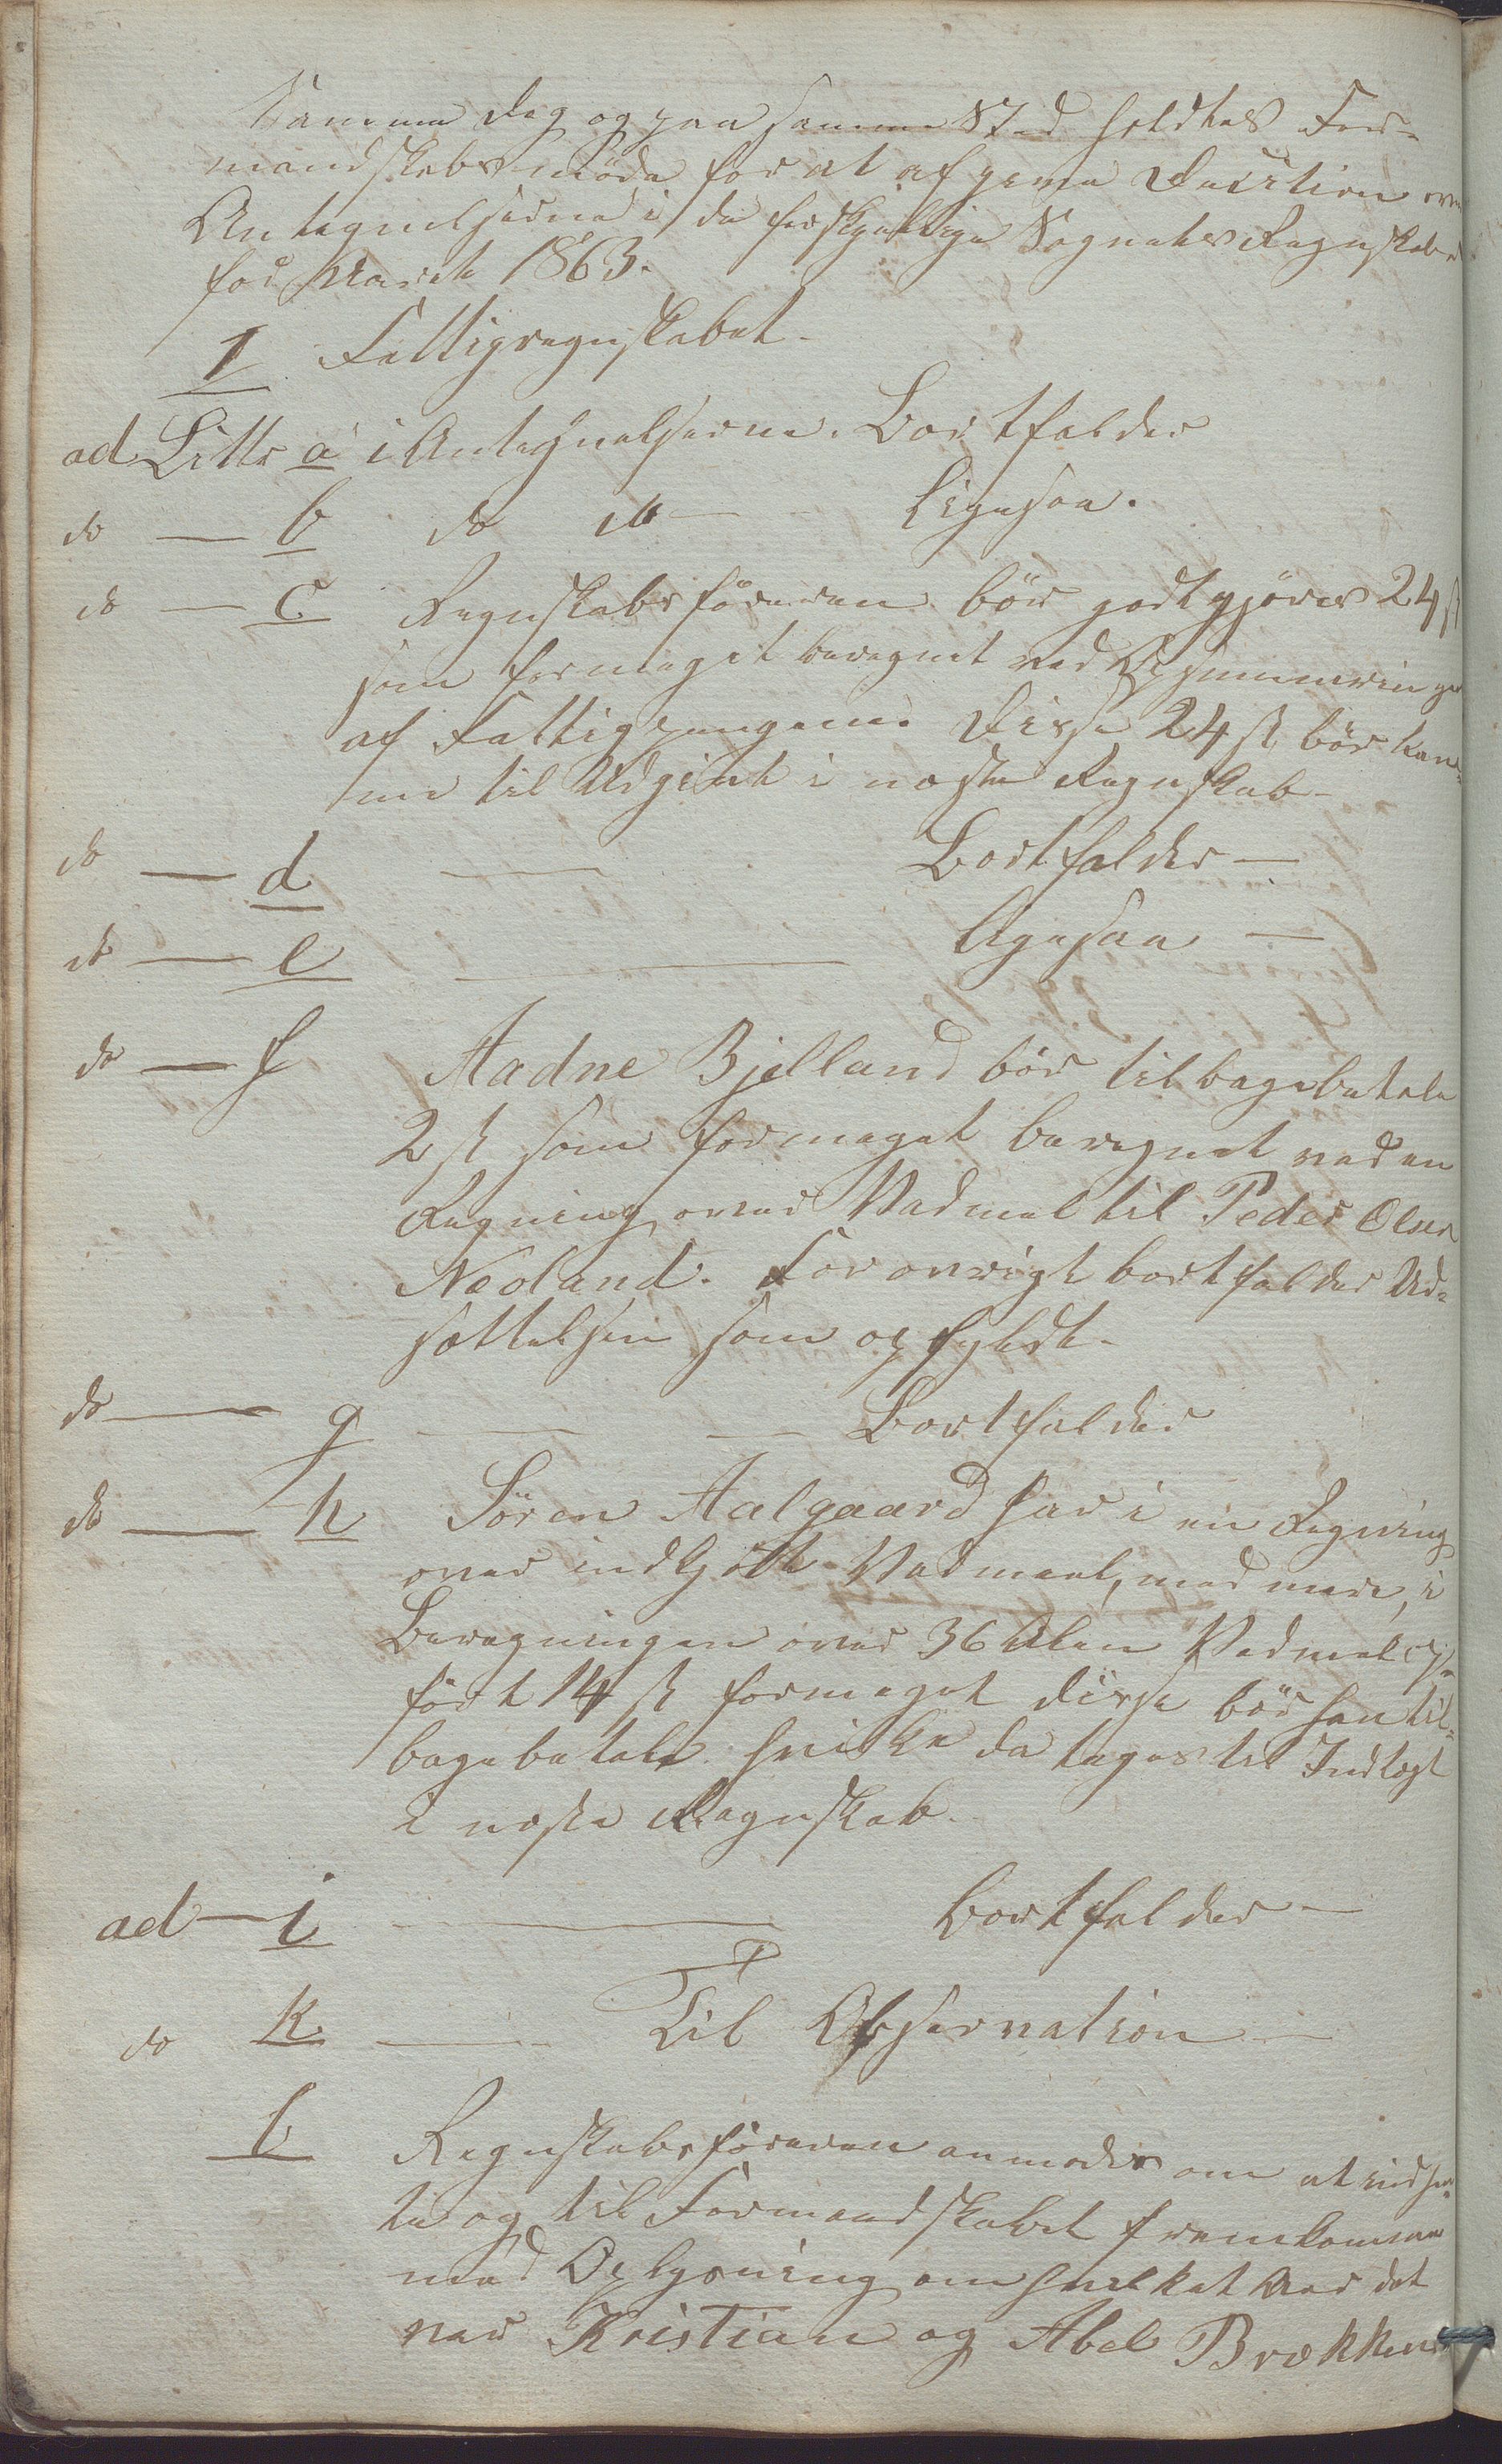 Samme Dag og paa samme Sted holdtes For-
mandskabsmøde for at afgive Decition over
Antegnelserne i de forskjellige Sognets Regnskaber
for Aaret 1863.
1 Fattigregnskabet-
ad Littr a i Antegnelserne. Bortfalder
do — b do do — Ligesaa.
do — c Regnskabsføreren bør godtgjøres 24 ß
som formeget beregnet ved Opsummeringen
af Fattigpengene. Disse 24 ß bør kom-
me til Udgivt i næste Regnskab-
do — d — Bortfalder —
do — e — Ligesaa —
do — f Aadne Bjelland bør tilbagebetale
2 ß som formeget beregnet ved en
Regning over Vadmel til Peder Olsen
Næoland. Forøvrigt bortfalder Ud-
sættelsen som opfyldt-
do — g — — Bortfalder
do — h Sören Aalgaard har i en Regning
over indkjøbt Vadmael, med mere, i
Beregningen over 36 Alen Vadmel op-
ført 14 ß formeget disse bør han til-
bagebetale hvilke da tages til Indtægt
i næste Regnskab.
ad — i — bortfalder —
do k — Til Observation —
l Regnskabsføreren anmodes om at indhen-
te og til Formandskabet fremkomme
med Oplysning om hvilket Aar det
var Kristian og Abel Brækken